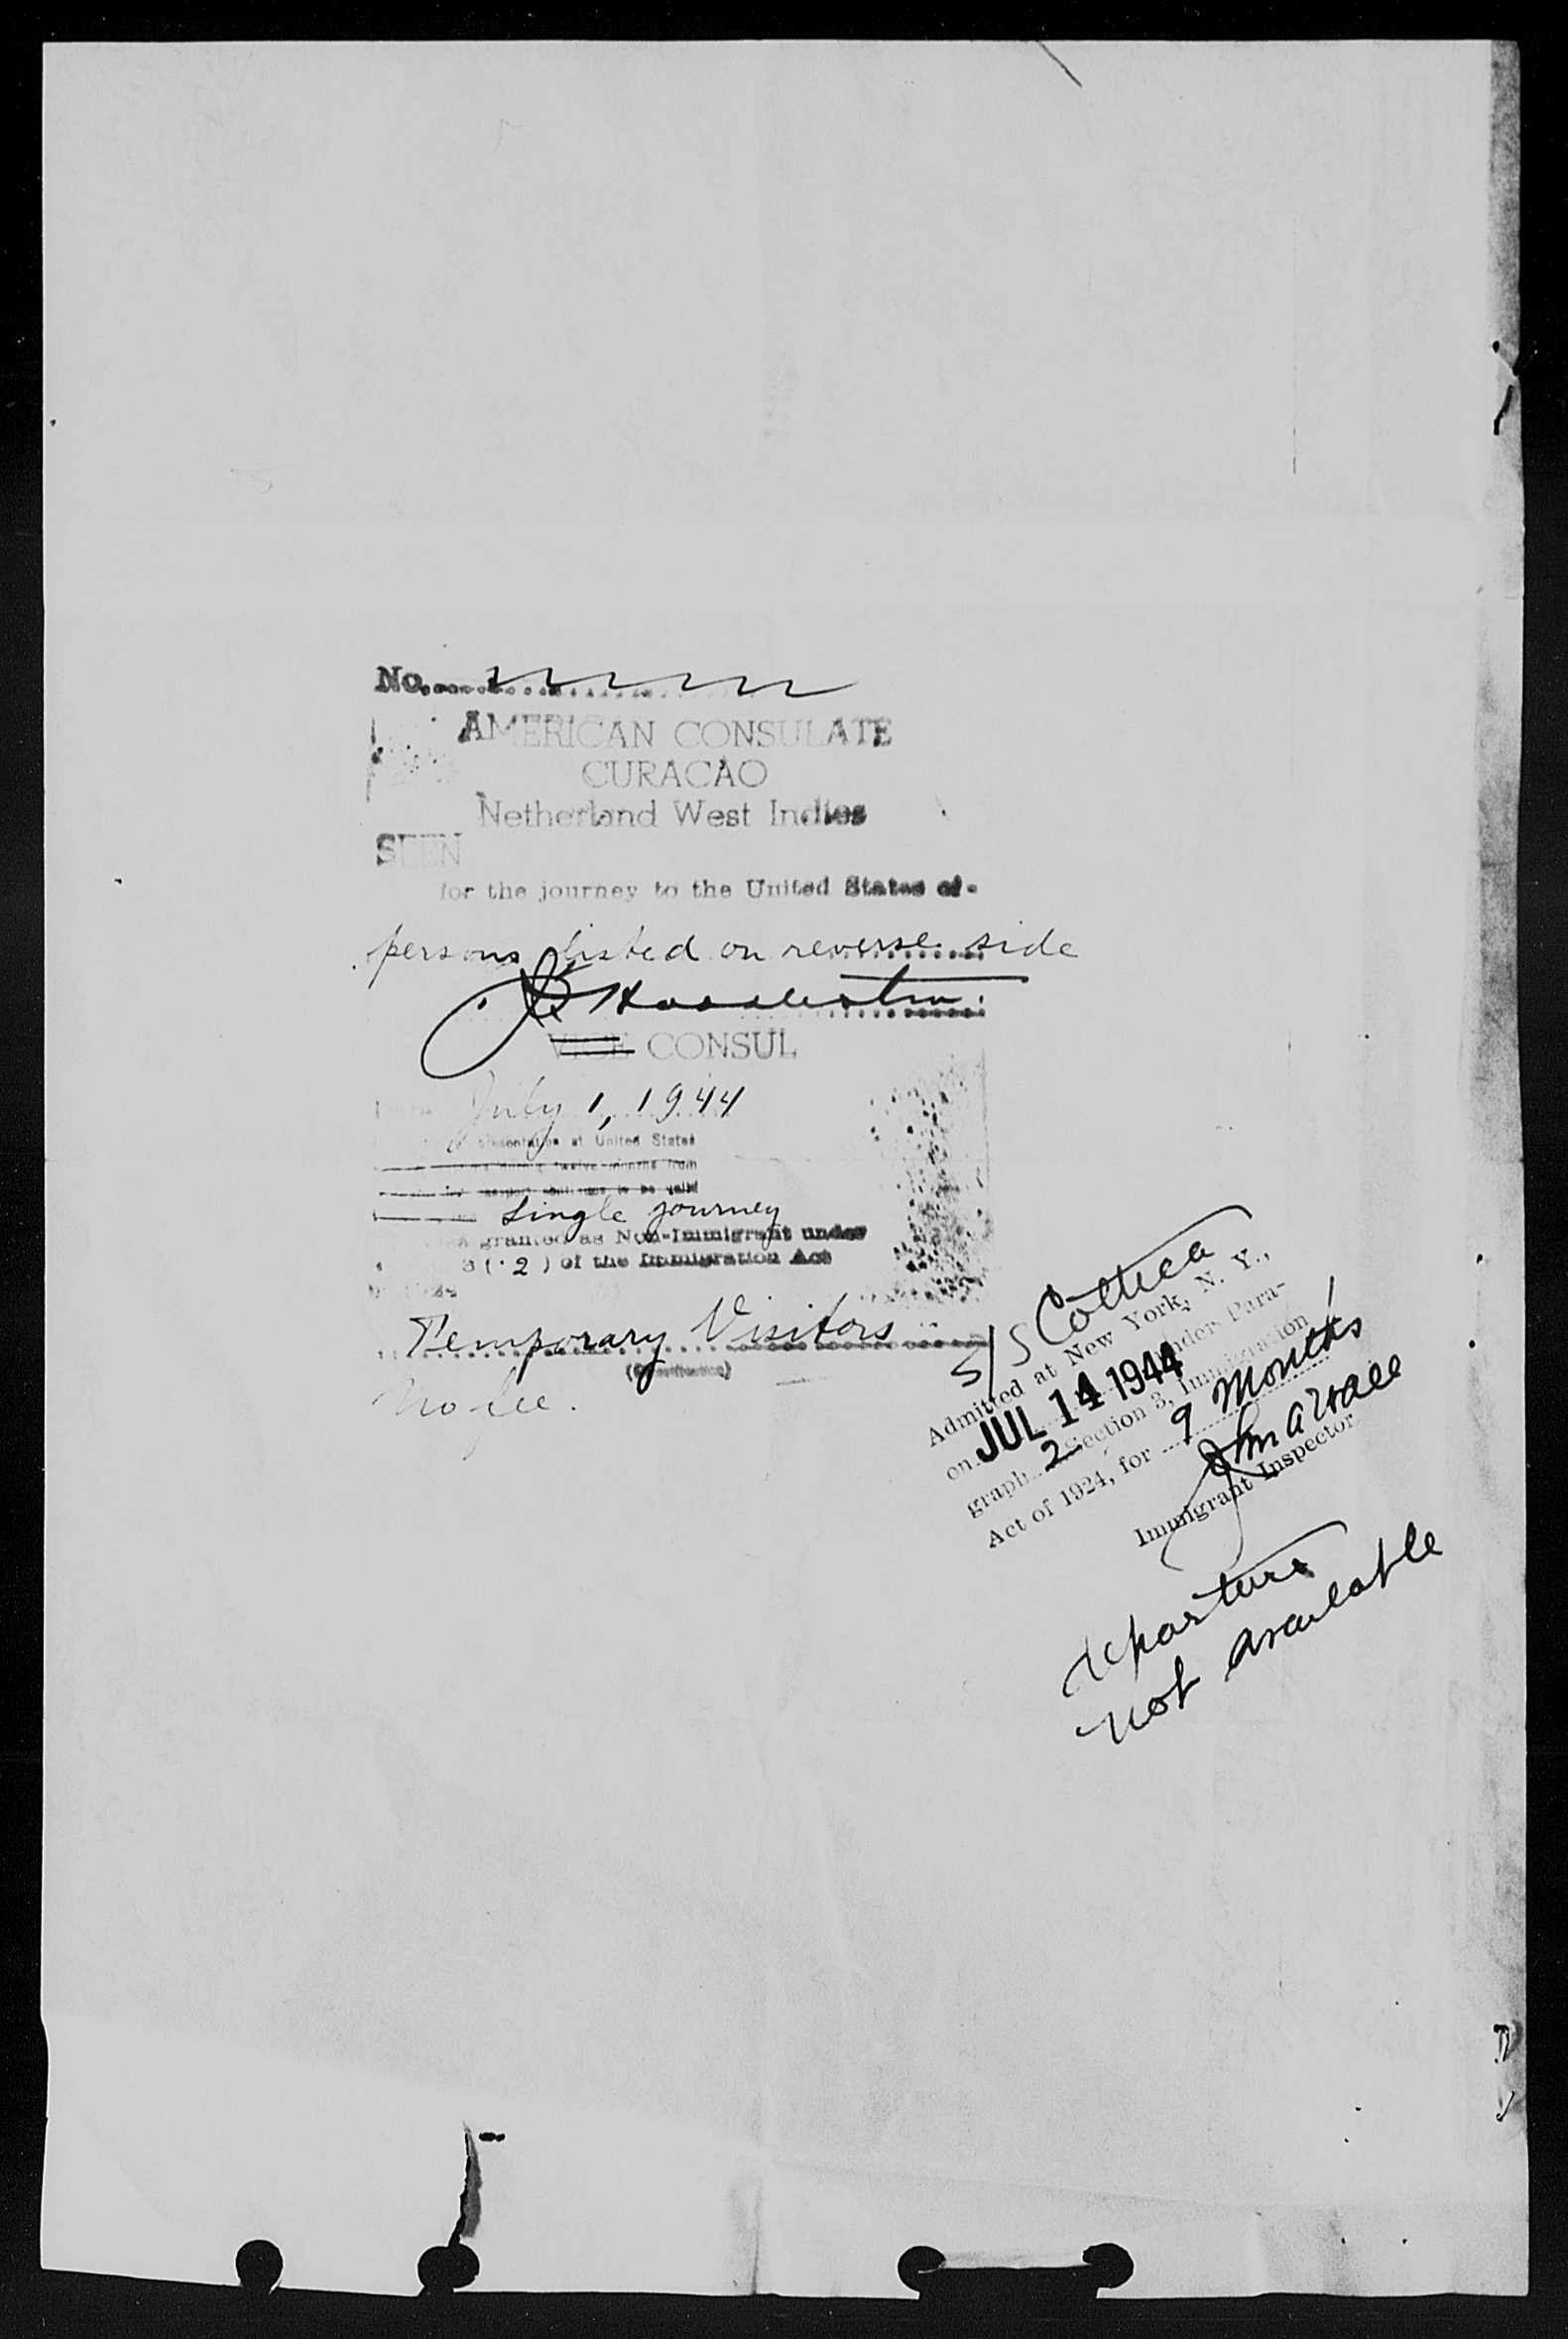 No.
AMERICAN CONSULATE
CURACAO
Netherland West Indies
SEEN
for the journey to the United States of
persons listed on reverse side
VICE CONSUL
July 1, 1944
presentation at United States
twelve months from
passport continues to be valid
single journey
granted as Non-Immigrant under
3(2) of the Immigration Act
Temporary Visitors
No fee.
S/S Cottica
Admitted at New York, N. Y.,
on JUL 14 1944 under Para-
graph 2 Section 3, Immigration
Act of 1924, for 9 months
Immigrant Inspector
departure
not available